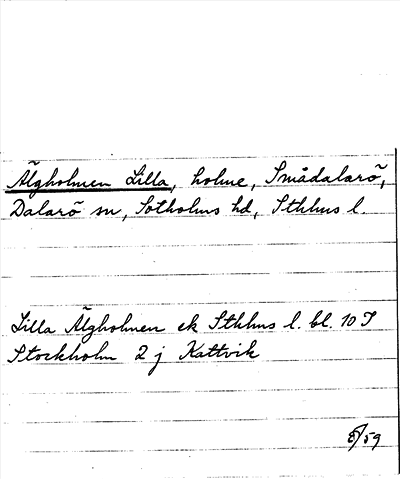 Älgholmen Lilla, holme, Smådalarö,
Dalarö sn, Sotholms hd, Sthlms l.
Lilla Älgholmen ek Sthlms l. bl. 10 I
Stockholm 2 j Kattvik
8/59